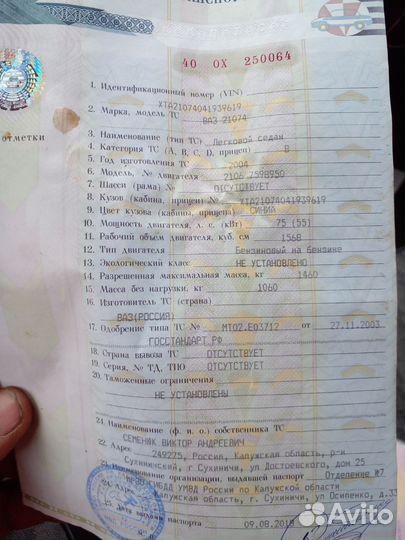 40 ОХ 250064
1. Идентификационный номер (VIN)
ХТА21074041939619
2. Марка, модель ТС ВАЗ 21074
3. Наименование (тип ТС) Легковой седан
отметки
4. Категория ТС (A, B, C, D, прицеп) В
5. Год изготовления ТС 2004
6. Модель, № двигателя 2106 7598950
7. Шасси (рама) № ОТСУТСТВУЕТ
8. Кузов (кабина, прицеп) № ХТА21074041939619
9. Цвет кузова (кабины, прицепа) СИНИЙ
10. Мощность двигателя, л. с. (кВт) 75 (55)
11. Рабочий объем двигателя, куб. см 1568
12. Тип двигателя Бензиновый на бензине
13. Экологический класс НЕ УСТАНОВЛЕНО
14. Разрешенная максимальная масса, кг 1460
15. Масса без нагрузки, кг 1060
16. Изготовитель ТС (страна)
ВАЗ(РОССИЯ)
17. Одобрение типа ТС № МТ02.Е03712 от 27.11.2003
ГОССТАНДАРТ РФ
18. Страна вывоза ТС ОТСУТСТВУЕТ
19. Серия, № ТД, ТПО ОТСУТСТВУЕТ
20. Таможенные ограничения
НЕ УСТАНОВЛЕНЫ
21. Наименование (ф. и. о.) собственника ТС
СЕМЕНЮК ВИКТОР АНДРЕЕВИЧ
22. Адрес 249275, Россия, Калужская область, р-н
Сухиничский, г Сухиничи, ул Достоевского, дом 25
23. Наименование организации, выдавшей паспорт Отделение №7
МРЭО ГИБДД УМВД России по Калужской области
24. Адрес Калужская область, г. Сухиничи, ул Осипенко, д.33
25. Дата выдачи паспорта 09.08.2018
Avito